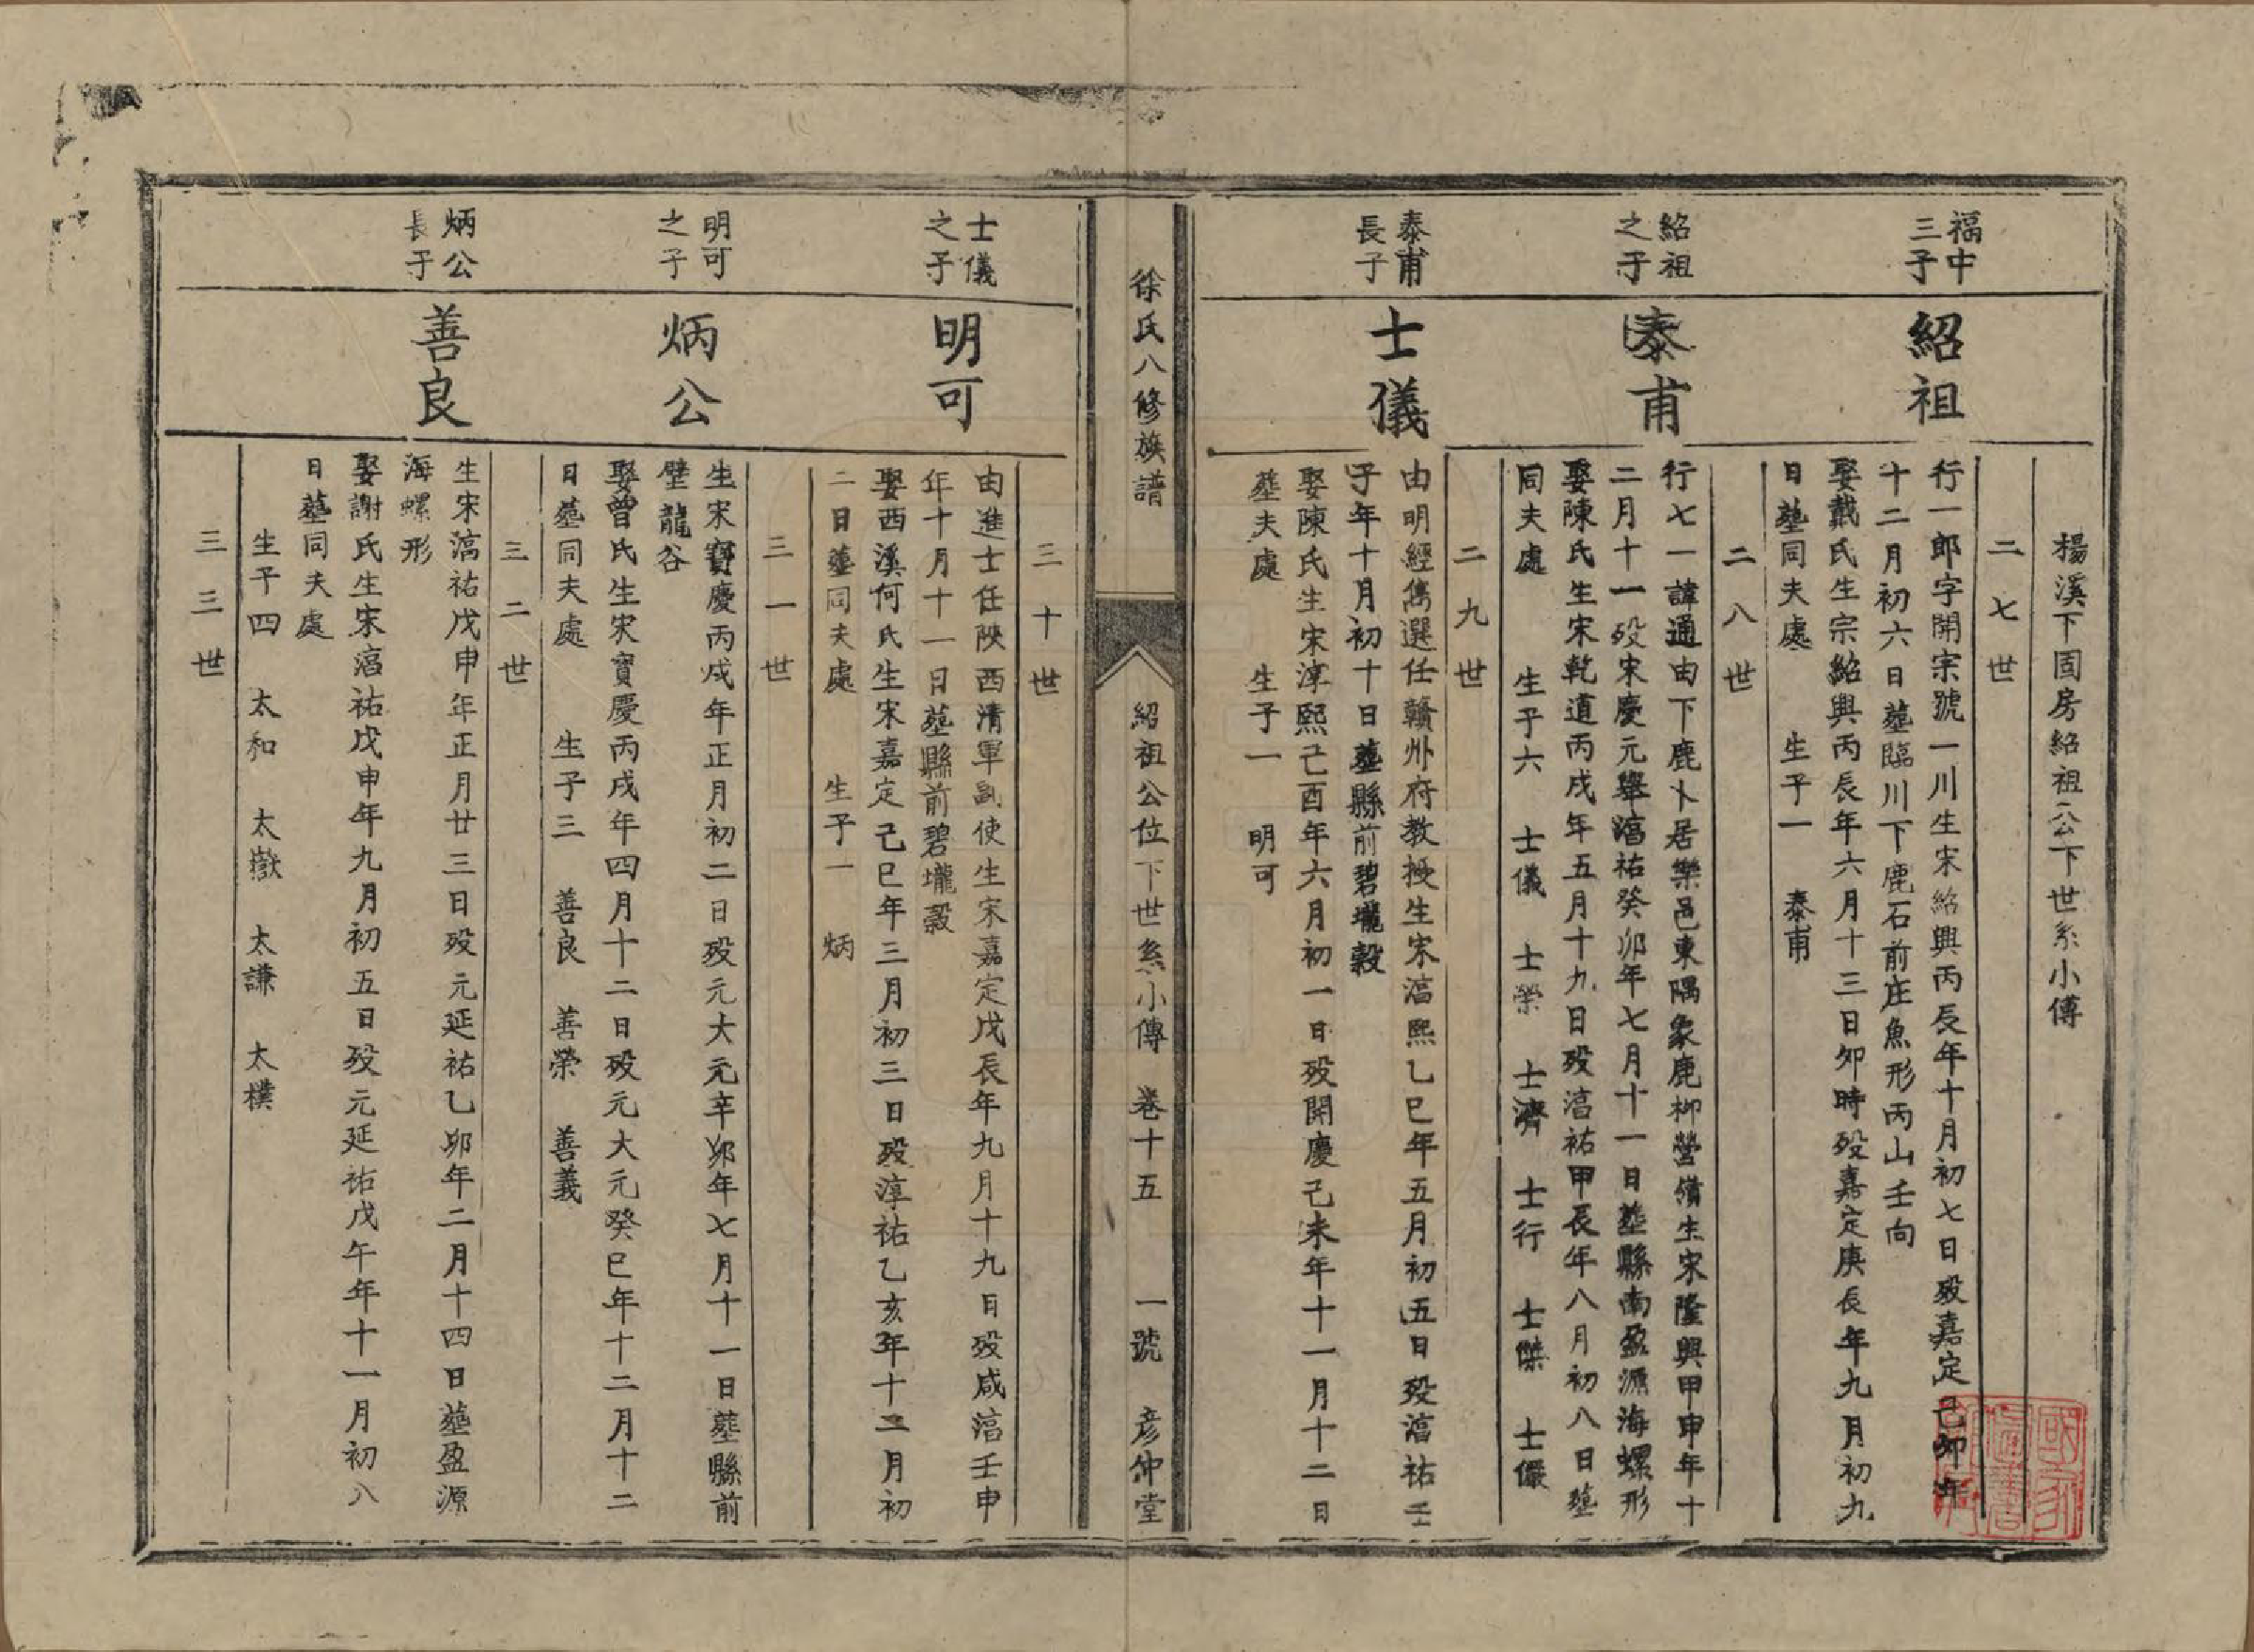 楊溪下固房紹祖公下世系小傳
二七世
福中
三子
紹祖
行一郎字開宗號一川生宋紹興丙辰年十月初七日殁嘉定己卯年
十二月初六日塟臨川下鹿石前庄魚形丙山壬向
娶戴氏生宗紹興丙辰年六月十三日卯時殁嘉定庚辰年九月初九
日塟同夫處 生子一 泰甫
二八世
紹祖
之子
泰甫
行七一諱通由下鹿卜居樂邑東隅象鹿柳營僙生宋隆興甲申年十
二月十一殁宋慶元舉湻祐癸卯年七月十一日塟縣南盈源海螺形
娶陳氏生宋乾道丙戌年五月十九日殁湻祐甲辰年八月初八日塟
同夫處 生子六 士儀 士榮 士濟 士行 士傑 士儼
二九世
泰甫
長子
士儀
由明經雋選任贛州府教授生宋湻熙乙巳年五月初五日殁湻祐壬
子年十月初十日塟縣前碧壠榖
娶陳氏生宋淳熙己酉年六月初一日殁開慶己未年十一月十二日
塟夫處 生子一 明可
徐氏八修族譜
紹祖公位下世系小傳 卷十五 一號 彦仲堂
三十世
士儀
之子
明可
由進士任陝西清軍副使生宋嘉定戊辰年九月十九日殁咸湻壬申
年十月十一日塟縣前碧壠榖
娶西溪何氏生宋嘉定己巳年三月初三日殁淳祐乙亥年十二月初
二日塟同夫處 生子一 炳
三一世
明可
之子
炳公
生宋寶慶丙戌年正月初二日殁元大元辛卯年七月十一日塟縣前
壁龍谷
娶曾氏生宋寶慶丙戌年四月十二日殁元大元癸巳年十二月十二
日塟同夫處 生子三 善良 善榮 善義
三二世
炳公
長子
善良
生宋湻祐戊申年正月廿三日殁元延祐乙卯年二月十四日塟盈源
海螺形
娶謝氏生宋湻祐戊申年九月初五日殁元延祐戊午年十一月初八
日塟同夫處
生子四 太和 太嶽 太謙 太樸
三三世